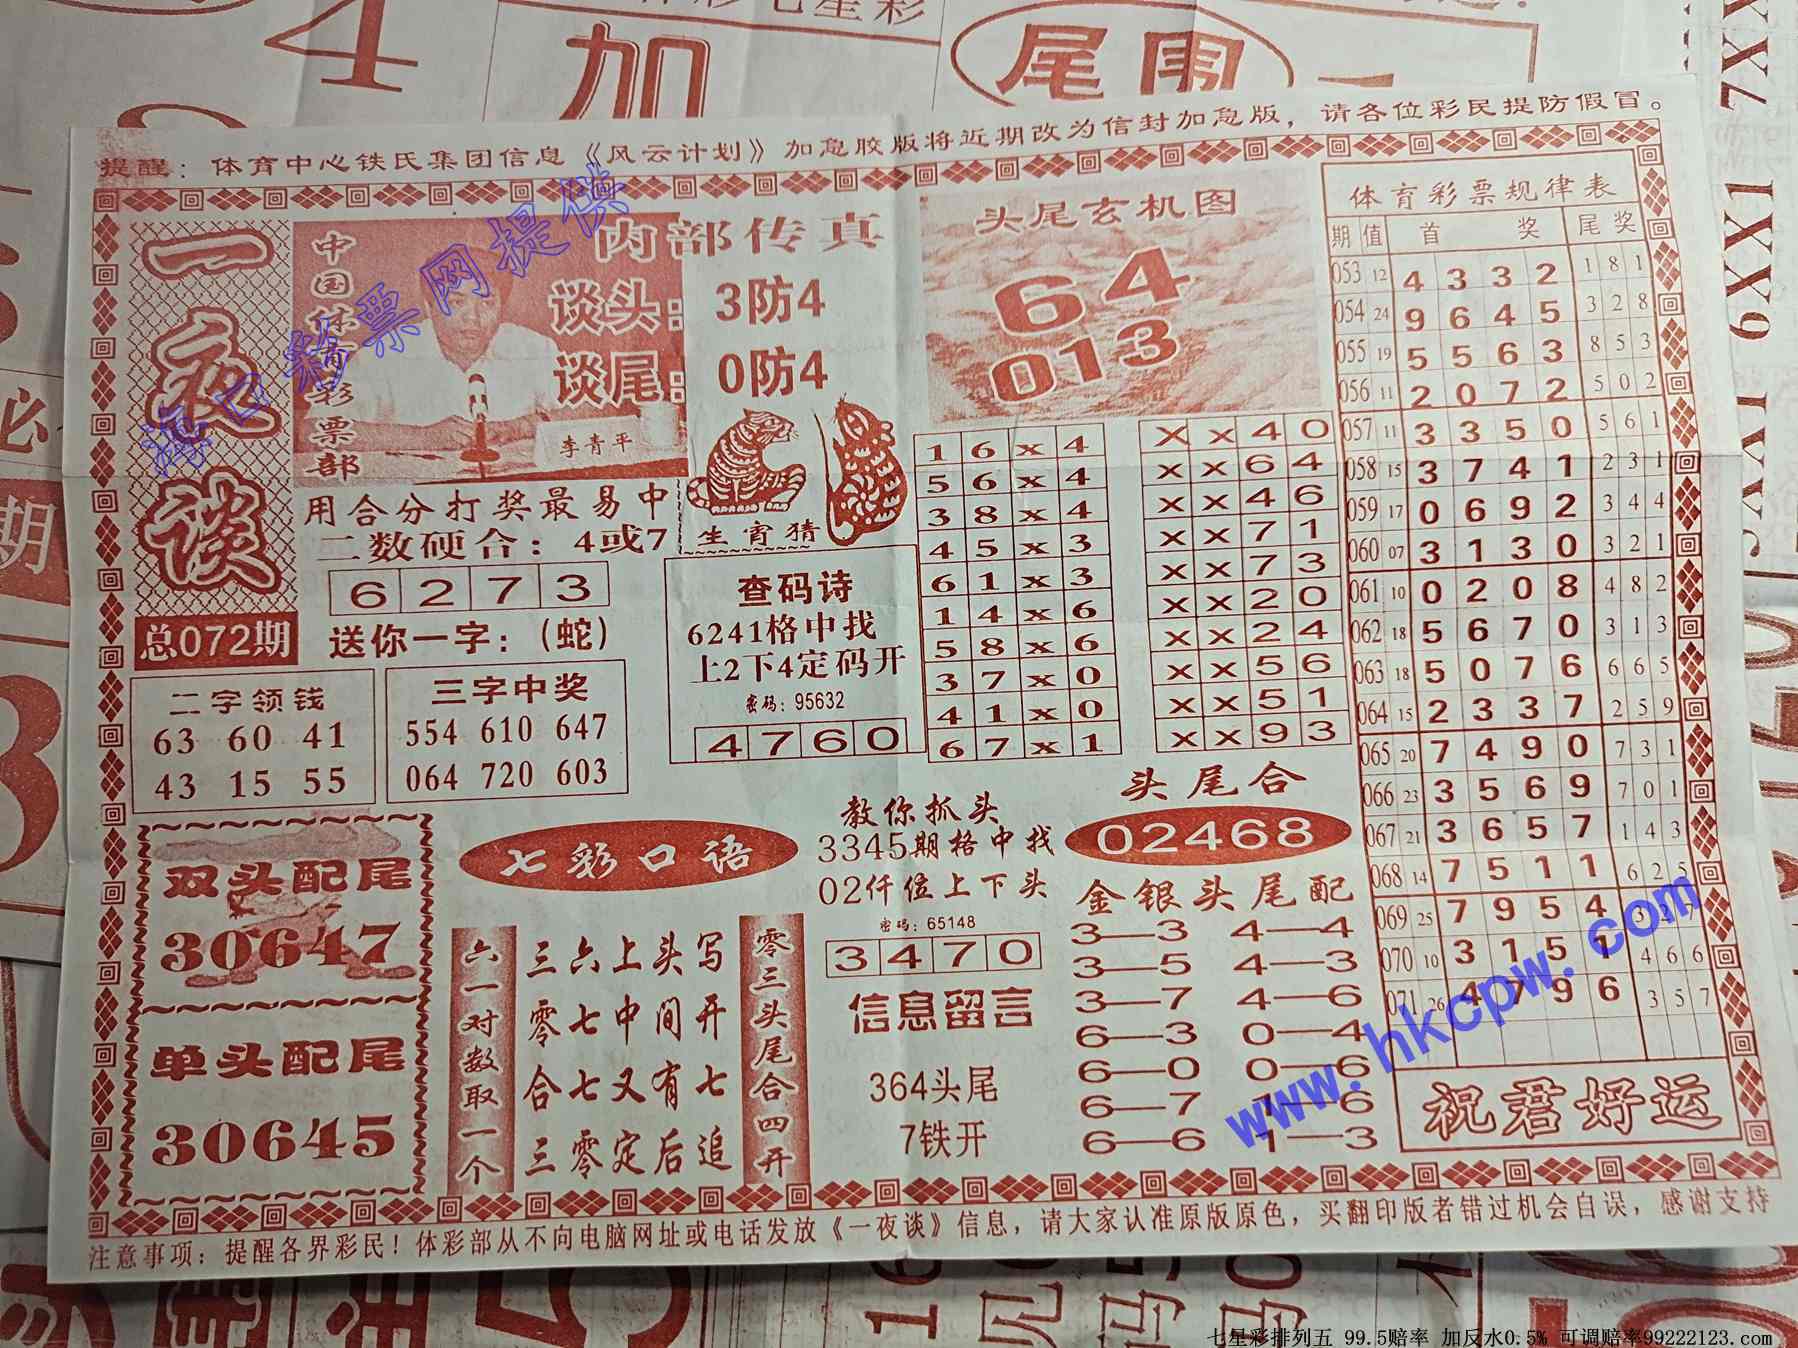 加
尾围
提醒：体育中心铁氏集团信息《风云计划》加急胶版将近期改为信封加急版，请各位彩民提防假冒。
一夜谈
总072期
中国体育彩票部
内部传真
谈头：3防4
谈尾：0防4
李青平
用合分打奖最易中
二数硬合：4或7
6 2 7 3
送你一字：（蛇）
生肖猜
头尾玄机图
64
013
查码诗
6241格中找
上2下4定码开
密码：95632
4 7 6 0
1 6 x 4
5 6 x 4
3 8 x 4
4 5 x 3
6 1 x 3
1 4 x 6
5 8 x 6
3 7 x 0
4 1 x 0
6 7 x 1
X x 4 0
x x 6 4
x x 4 6
x x 7 1
x x 7 3
x x 2 0
x x 2 4
x x 5 6
x x 5 1
x x 9 3
二字领钱
63 60 41
43 15 55
三字中奖
554 610 647
064 720 603
双头配尾
30647
单头配尾
30645
七彩口语
六一对数取一个
三六上头写
零七中间开
合七又有七
三零定后追
零三头尾合四开
教你抓头
3345期格中找
02仟位上下头
密码：65148
3 4 7 0
信息留言
364头尾
7铁开
头尾合
02468
金银头尾配
3—3 4—4
3—5 4—3
3—7 4—6
6—3 0—4
6—0 0—6
6—7 7—6
6—6 7—3
体育彩票规律表
期 值 首 奖 尾 奖
053 12 4 3 3 2 1 8 1
054 24 9 6 4 5 3 2 8
055 19 5 5 6 3 8 5 3
056 11 2 0 7 2 5 0 2
057 11 3 3 5 0 5 6 1
058 15 3 7 4 1 2 3 1
059 17 0 6 9 2 3 4 4
060 07 3 1 3 0 3 2 1
061 10 0 2 0 8 4 8 2
062 18 5 6 7 0 3 1 3
063 18 5 0 7 6 6 6 5
064 15 2 3 3 7 2 5 9
065 20 7 4 9 0 7 3 1
066 23 3 5 6 9 7 0 1
067 21 3 6 5 7 1 4 3
068 14 7 5 1 1 6 2 5
069 25 7 9 5 4 3 2
070 10 3 1 5 1 4 6 6
071 26 4 7 9 6 3 5 7
祝君好运
注意事项：提醒各界彩民！体彩部从不向电脑网址或电话发放《一夜谈》信息，请大家认准原版原色，买翻印版者错过机会自误，感谢支持
海口彩票网提供
www.hkcpw.com
七星彩排列五 99.5赔率 加反水0.5% 可调赔率99222123.com